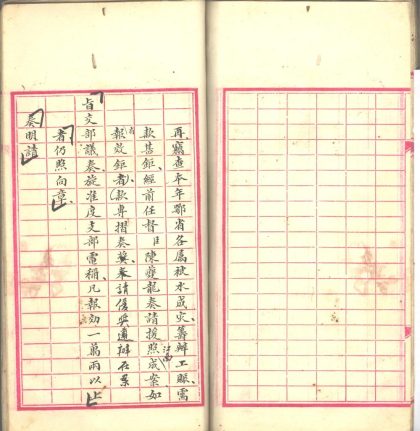 再竊查本年鄂省各属被水成灾籌辦工賑需
款甚鉅經前任督臣陳夔龍奏請援照江西成案如
報效鉅款者專摺奏請優奬遵辦在案
旨交部議奏旋准度支部電稱凡報効一萬兩以上
者仍照向章
奏明請